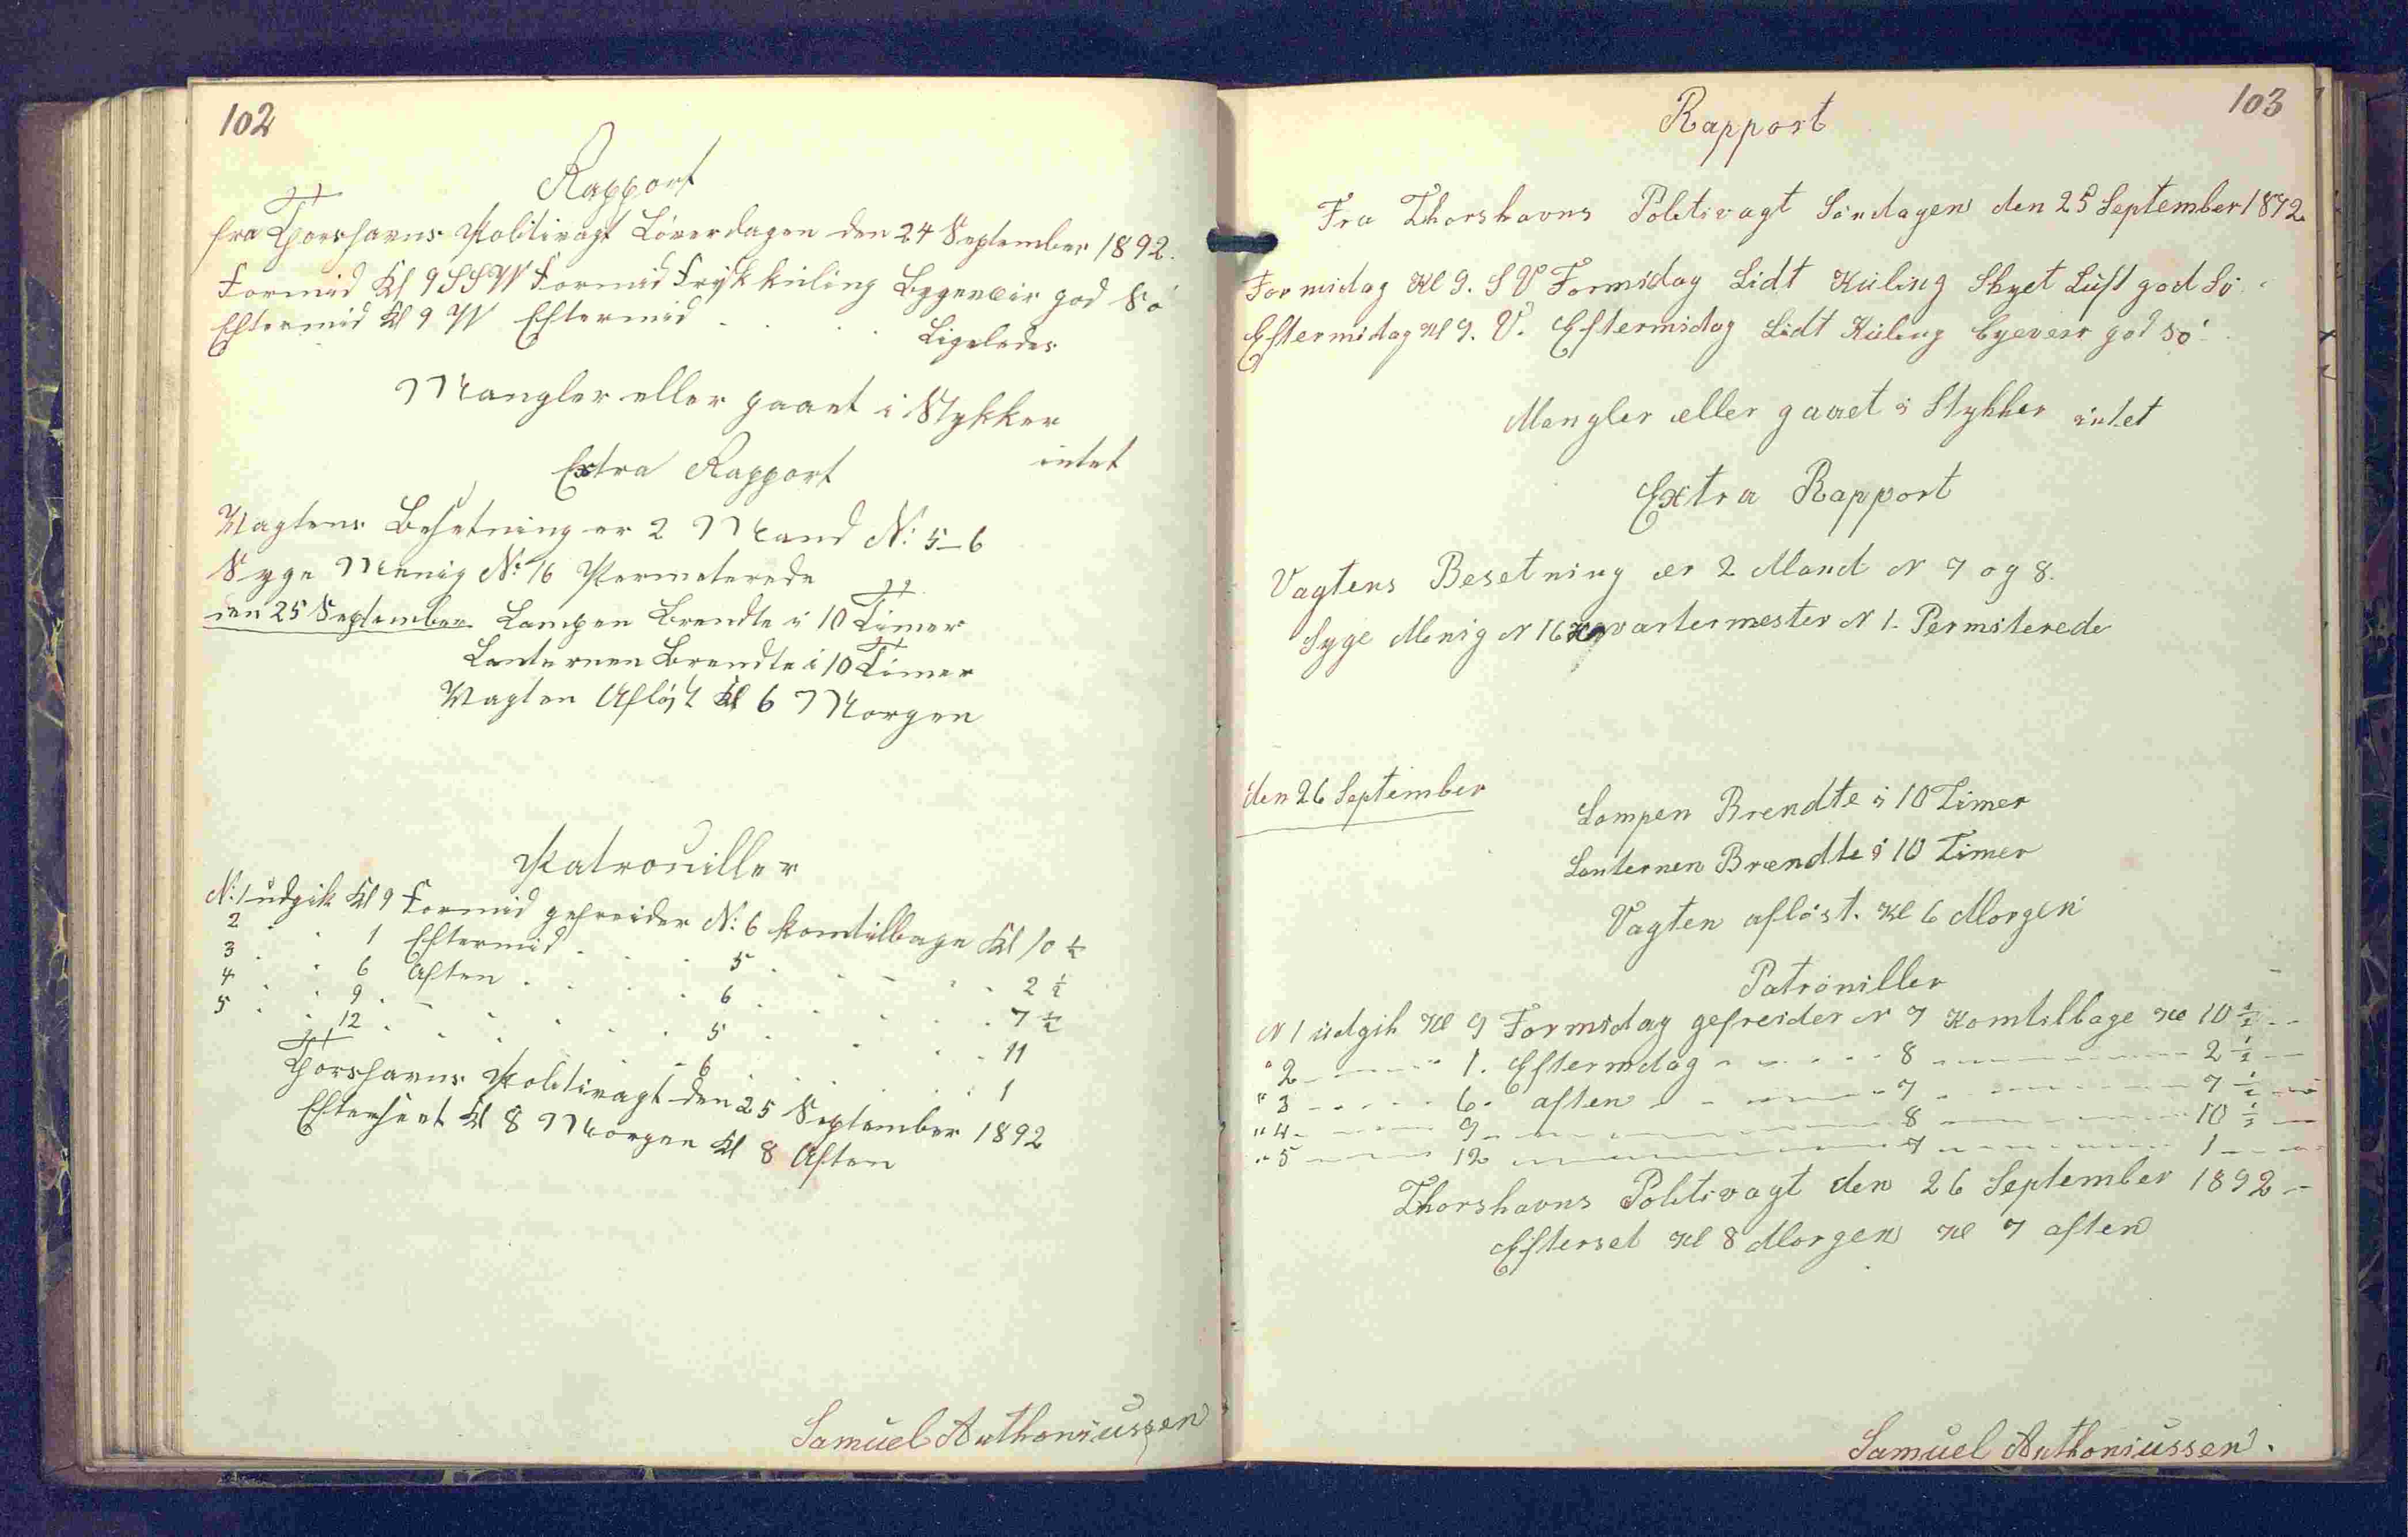 102
Rapport
fra Thorshavns Politivagt Löverdagen den 24 September 1892.
Formid Kl 9 SSW Formid Frisk kuling Bygeveir god Sö
Eftermid Kl 9 W Eftermid . . . . Ligeledes
Mangler eller gaaet i Stykker
intet
Extra Rapport
Vagtens Besetning er 2 Mand N: 5-6
Syge Menig N: 16 Permeterede
den 25 September Lampen Brendte i 10 Timer
Lanternen Brendte i 10 Timer
Vagten Aflöst Kl 6 Morgen
Patrouiller
N: 1 udgik Kl 9 Formid gefreider N: 6 komtilbage Kl 10 ½
2 . . 1 Eftermid . . . 5 . . . . 2 ½
3 . . 6 Aften . . . . 6 . . . . 7 ½
4 . . 9 . . . . . . 5 . . . . 11
5 . . 12 . . . . . . 6 . . . . 1
Thorshavns Politivagt den 25 September 1892
Efterseet Kl 8 Morgen Kl 8 Aften
Samuel Anthoniussen
103
Rapport
Fra Thorshavns Politivagt Söndagen den 25 September 1892
Formidag Kl 9. S V Formidag Lidt Kuling Skyet Luft god Sö.
Eftermidag Kl 9. V. Eftermidag Lidt Kuling byeveir god Sö.
Mangler eller gaaet i Stykker intet
Extra Rapport
Vagtens Besetning er 2 Mand N 7 og 8.
Syge Menig N 16 Kvartermester N 1. Permiterede
den 26 September
Lampen Brendte i 10 Timer
Lanternen Brændte i 10 Timer
Vagten aflöst. Kl 6 Morgen
Patroniller
N 1 udgik Kl 9 Formidag gefreider N 7 Komtilbage Kl 10 ½ --
" 2 ------ 1. Eftermidag ------ 8 ------ 2 ½ --
" 3 ------ 6. aften ------ 7 ------ 7 ½ --
" 4 ------ 9 ------ 8 ------ 10 ½ --
" 5 ------ 12 ------ 7 ------ 1 --
Thorshavns Politivagt den 26 September 1892 -
Efterset Kl 8 Morgen Kl 7 aften
Samuel Anthoniussen.